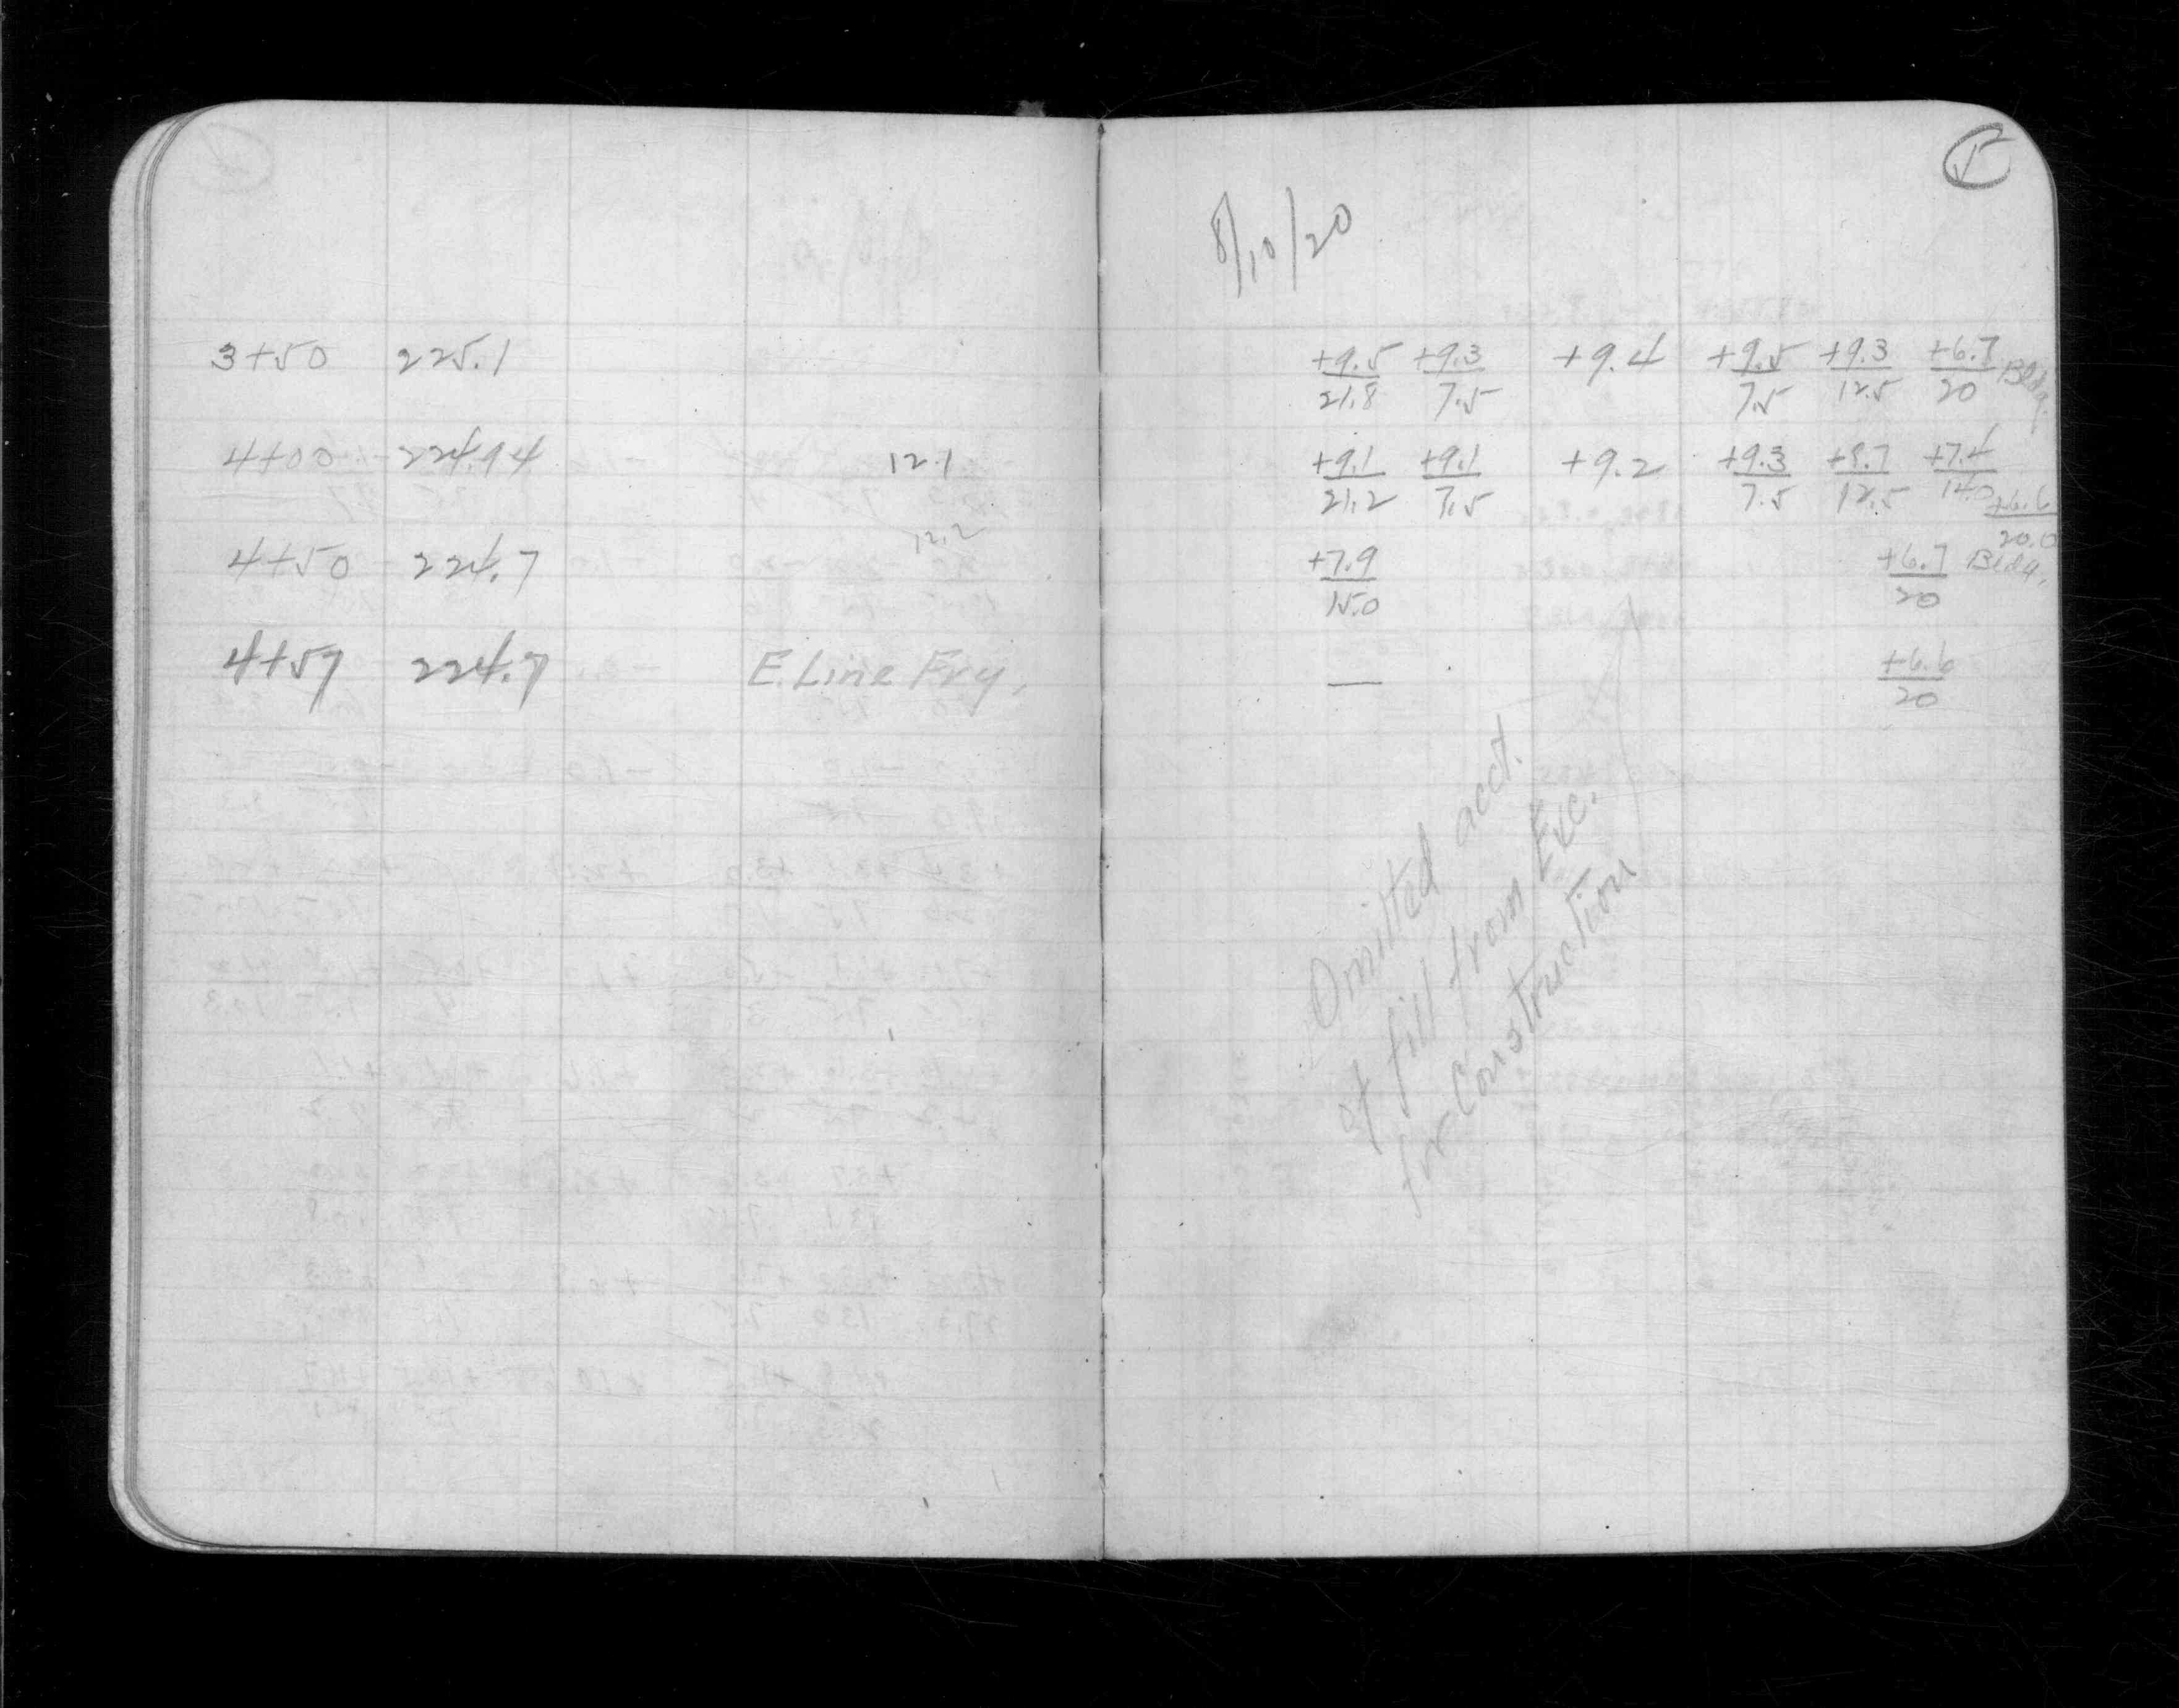 5
8/10/20
3+50 225.1 +9.5 +9.3 +9.4 +9.5 +9.3 +6.7 Bldg.
21.8 7.5 7.5 12.5 20
4+00 224.94 12.1 +9.1 +9.1 +9.2 +9.3 +8.7 +7.4
21.2 7.5 7.5 12.5 14.0 +6.6
12.2 20.0
4+50 224.7 +7.9 +6.7 Bldg.
15.0 20
4+57 224.7 E. Line Fry. — +6.6
20
Omitted acct.
of fill from Exc.
for Construction